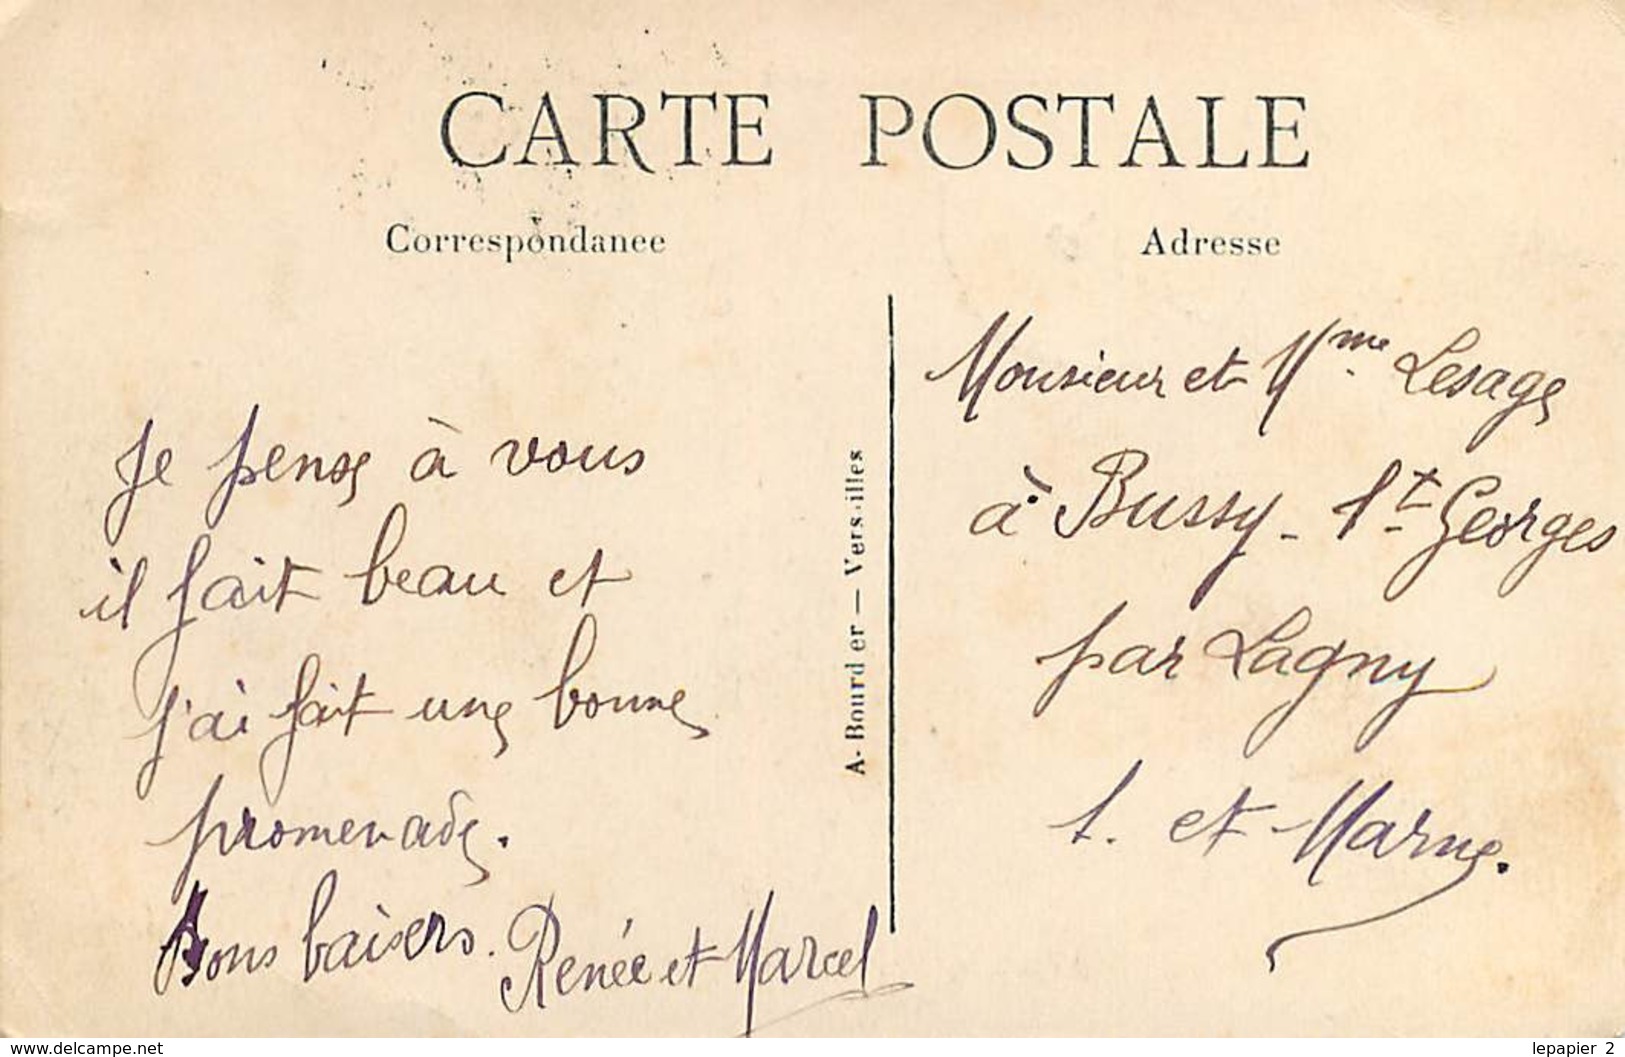 CARTE POSTALE
Correspondance
Adresse
Je pense à vous
il fait beau et
j'ai fait une bonne
promenade.
Bons baisers. Renée et Marcel
A. Bourdier — Versailles
Monsieur et Mme Lesage
à Bussy - St Georges
par Lagny
S. et Marne.
www.delcampe.net
lepapier_2